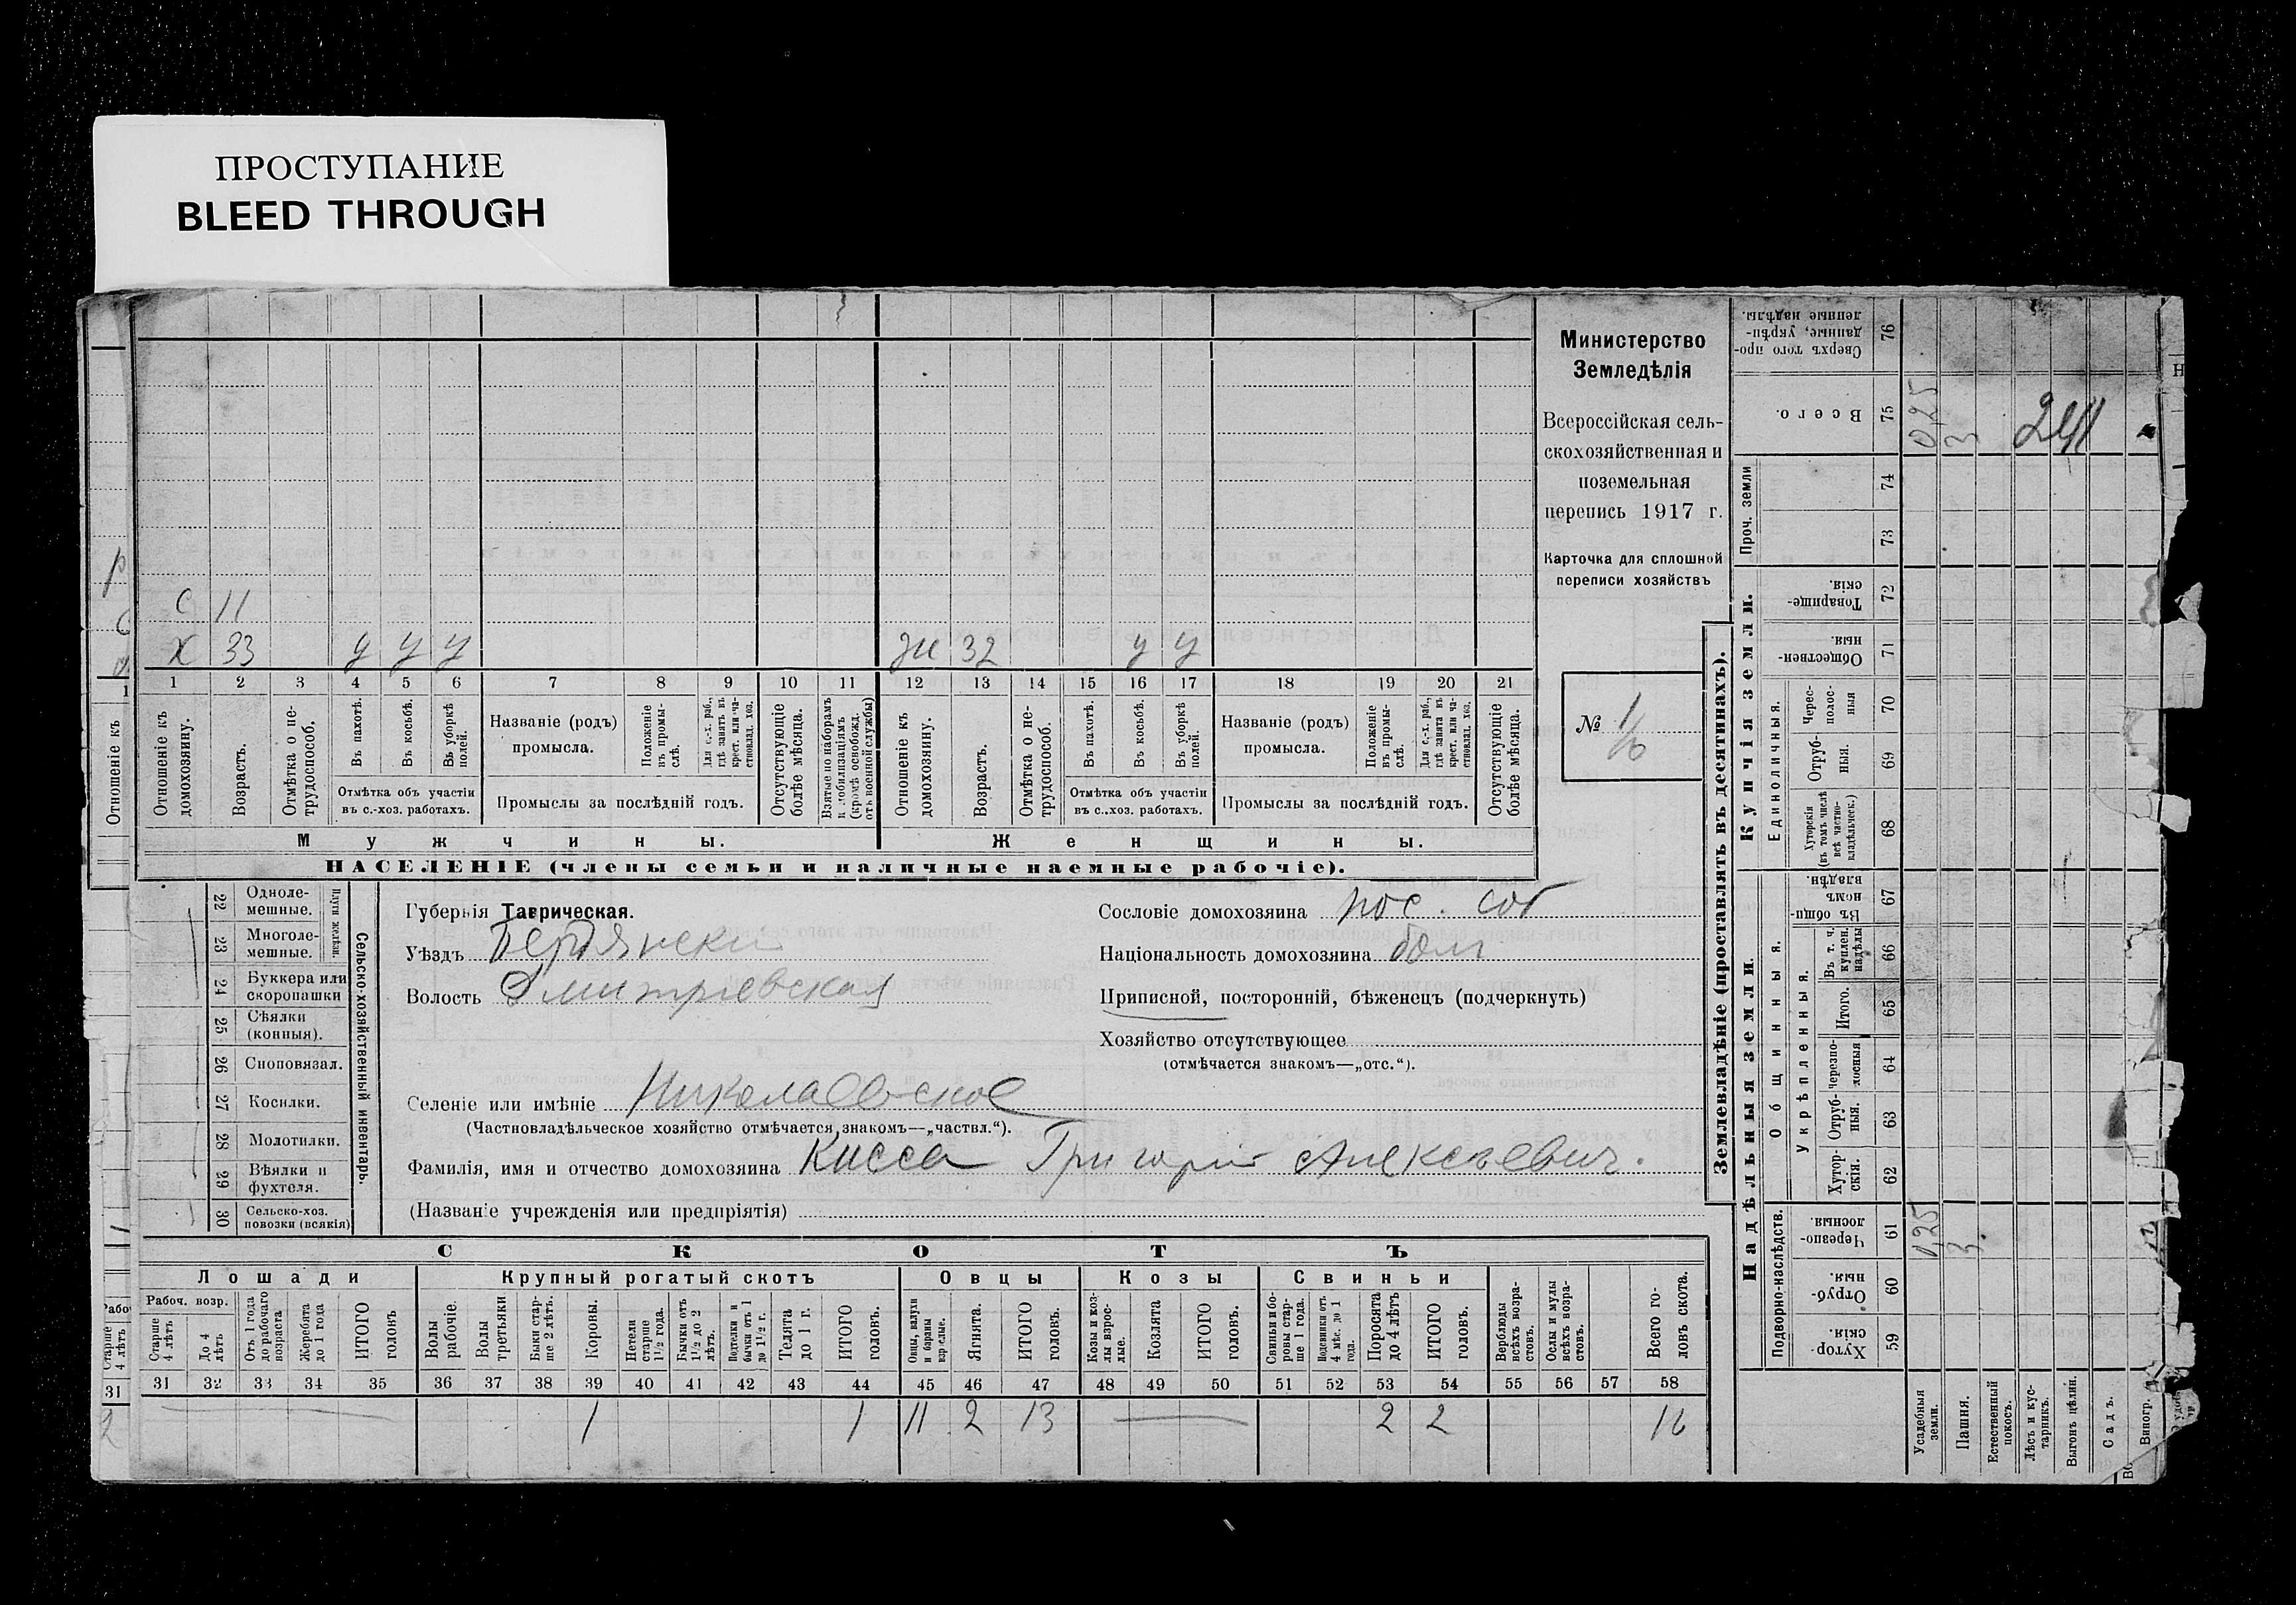 ПРОСТУПАНИЕ
BLEED THROUGH
Министерство
Земледѣлія
Всероссійская сель-
скохозяйственная и
поземельная
перепись 1917 г.
Карточка для сплошной
переписи хозяйствъ
№ 1
с 11
х 33 у у у
ж 32 у у
1 2 3 4 5 6 7 8 9 10 11 12 13 14 15 16 17 18 19 20 21
Отношеніе къ домохозяину.
Возрастъ.
Отмѣтка о не-трудоспособ.
Въ пахотѣ.
Въ косьбѣ.
Въ уборкѣ полей.
Отмѣтка объ участіи
въ с.-хоз. работахъ.
Названіе (родъ)
промысла.
Положеніе въ промы-слѣ.
Для с.-х. раб., гдѣ занятъ въ крест. или ча-стновлад. хоз.
Промыслы за послѣдній годъ.
Отсутствующіе болѣе мѣсяца.
Взятые по наборамъ и мобилизаціямъ (кромѣ освобожд. отъ военной службы)
Отношеніе къ домохозяину.
Возрастъ.
Отмѣтка о не-трудоспособ.
Въ пахотѣ.
Въ косьбѣ.
Въ уборкѣ полей.
Отмѣтка объ участіи
въ с.-хоз. работахъ.
Названіе (родъ)
промысла.
Положеніе въ промы-слѣ.
Для с.-х. раб., гдѣ занята въ крест. или ча-стновлад. хоз.
Промыслы за послѣдній годъ.
Отсутствующіе болѣе мѣсяца.
Мужчины. Женщины.
НАСЕЛЕНІЕ (члены семьи и наличные наемные рабочіе).
Сельско-хозяйственный инвентарь.
Плуги желѣзн.
22 Одноле-мешные.
23 Многоле-мешные.
24 Буккера или скоропашки
25 Сѣялки (конныя).
26 Сноповязал.
27 Косилки.
28 Молотилки.
29 Вѣялки и фухтеля.
30 Сельско-хоз. повозки (всякія)
Губернія Таврическая.
Уѣздъ Бердянски
Волость Дмитріевская
Сословіе домохозяина пос. соб
Національность домохозяина болг
Приписной, посторонній, бѣженецъ (подчеркнуть)
Хозяйство отсутствующее
(отмѣчается знакомъ—„отс.“).
Селеніе или имѣніе Николаевское
(Частновладѣльческое хозяйство отмѣчается знакомъ—„частвл.“).
Фамилія, имя и отчество домохозяина Кисса Григорій Алексѣевич.
(Названіе учрежденія или предпріятія)
СКОТЪ
Лошади Крупный рогатый скотъ Овцы Козы Свиньи
Рабоч. возр.
Старше 4 лѣтъ
До 4 лѣтъ
Отъ 1 года до рабочаго возраста
Жеребята до 1 года
ИТОГО головъ
Волы рабочіе.
Волы третьяки
Быки стар-ше 2 лѣтъ.
Коровы.
Нетели старше 1½ года.
Бычки отъ 1½ до 2 лѣтъ.
Подтелки и бычки отъ 1 до 1½ г.
Телята до 1 г.
ИТОГО головъ.
Овцы, валухи и бараны взрослые.
Ягнята.
ИТОГО головъ.
Козы и коз-лы взрос-лые.
Козлята
ИТОГО головъ.
Свиньи и бо-ровы стар-ше 1 года.
Подсвинки отъ 4 мѣс. до 1 года.
Поросята до 4 лѣтъ
ИТОГО головъ.
Верблюды всѣхъ возра-стовъ.
Ослы и мулы всѣхъ возра-стовъ.
Всего го-ловъ скота.
31 32 33 34 35 36 37 38 39 40 41 42 43 44 45 46 47 48 49 50 51 52 53 54 55 56 57 58
1 1 11 2 13 2 2 16
Землевладѣніе (проставлять въ десятинахъ).
Надѣльныя земли.
Купчія земли.
Проч. земли
Подворно-наслѣдств.
Общинныя.
Укрѣпленныя.
Единоличныя.
59 Хутор-скія.
60 Отруб-ныя.
61 Черезпо-лосныя.
62 Хутор-скія.
63 Отруб-ныя.
64 Черезпо-лосныя
65 Итого.
66 Въ т. ч. куплен. надѣлы
67 Въ общин-номъ владѣн.
68 Хуторскія (въ томъ числѣ всѣ частно-владѣльческ.)
69 Отруб-ныя.
70 Черес-полос-ныя
71 Обществен-ныя.
72 Товарище-скія.
73
74
75 Всего.
76 Сверхъ того про-данные, укрѣп-ленные надѣлы.
Усадебныя земли.
Пашня.
Естественный покосъ.
Лѣсъ и кус-тарникъ.
Выгонъ цѣлин.
Садъ.
Виногр.
0,25
3
0,25
3.